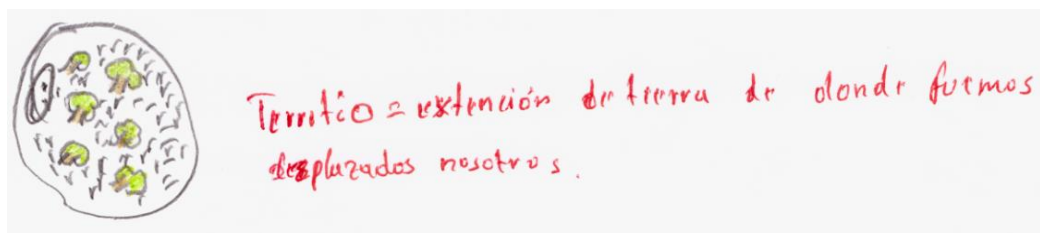 Territio = extención de tierra de donde fuemos
desplazados nosotros.